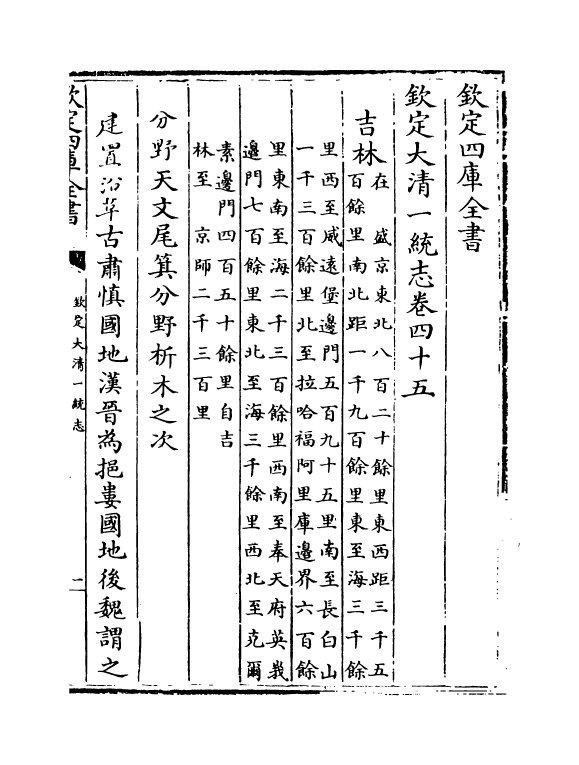 欽定四庫全書
欽定大清一統志卷四十五
吉林在 盛京東北八百二十餘里東西距三千五
百餘里南北距一千九百餘里東至海三千餘
里西至威遠堡邊門五百九十五里南至長白山
一千三百餘里北至拉哈福阿里庫邊界六百餘
里東南至海二千三百餘里西南至奉天府英峩
邊門七百餘里東北至海三千餘里西北至克爾
素邊門四百五十餘里自吉
林至 京師二千三百里
分野天文尾箕分野析木之次
建置沿革古肅慎國地漢晉為挹婁國地後魏謂之
欽定四庫全書
欽定大清一統志
二